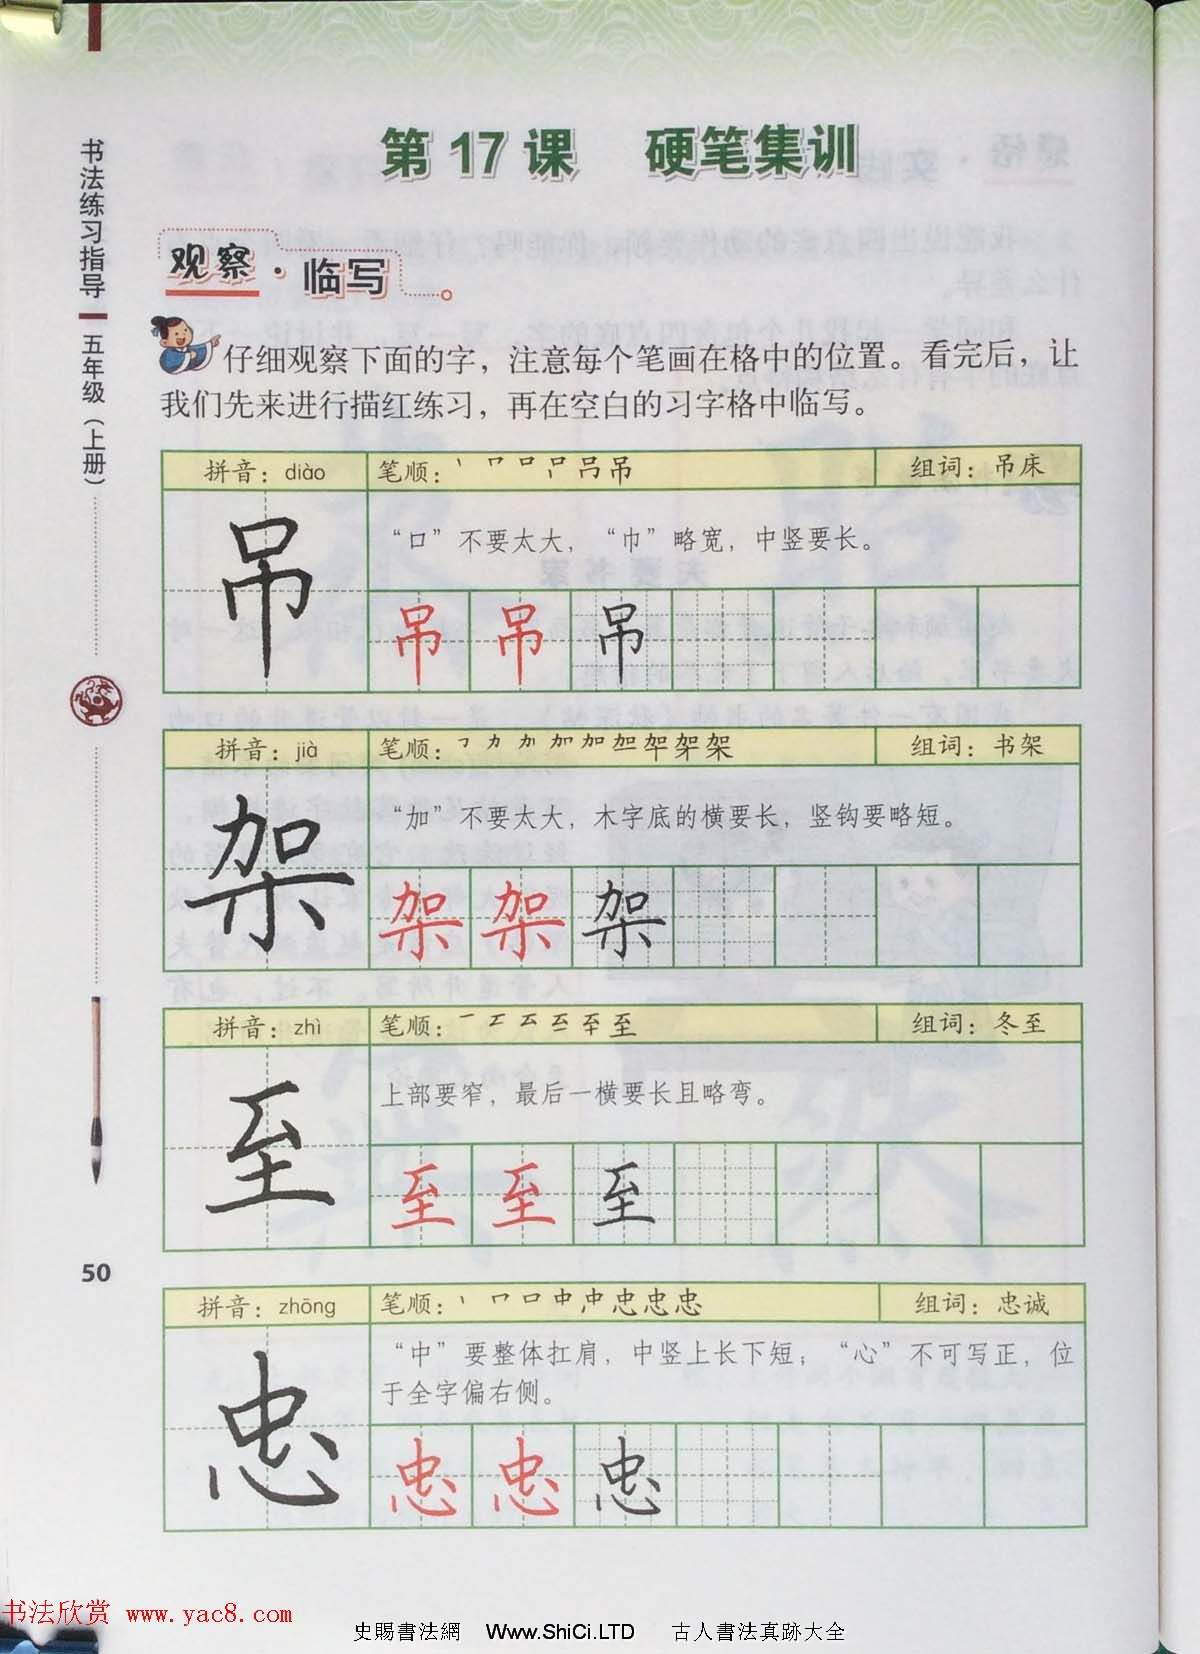 第 17 课 硬笔集训
书法练习指导
五年级（上册）
观察·临写
仔细观察下面的字，注意每个笔画在格中的位置。看完后，让
我们先来进行描红练习，再在空白的习字格中临写。
拼音：diào 笔顺： 组词：吊床
吊
“口”不要太大，“巾”略宽，中竖要长。
吊 吊 吊
拼音：jià 笔顺： 组词：书架
架
“加”不要太大，木字底的横要长，竖钩要略短。
架 架 架
拼音：zhì 笔顺： 组词：冬至
至
上部要窄，最后一横要长且略弯。
至 至 至
50
拼音：zhōng 笔顺： 组词：忠诚
忠
“中”要整体扛肩，中竖上长下短；“心”不可写正，位
于全字偏右侧。
忠 忠 忠
书法欣赏 www.yac8.com
史賜書法網 Www.ShiCi.LTD 古人書法真跡大全